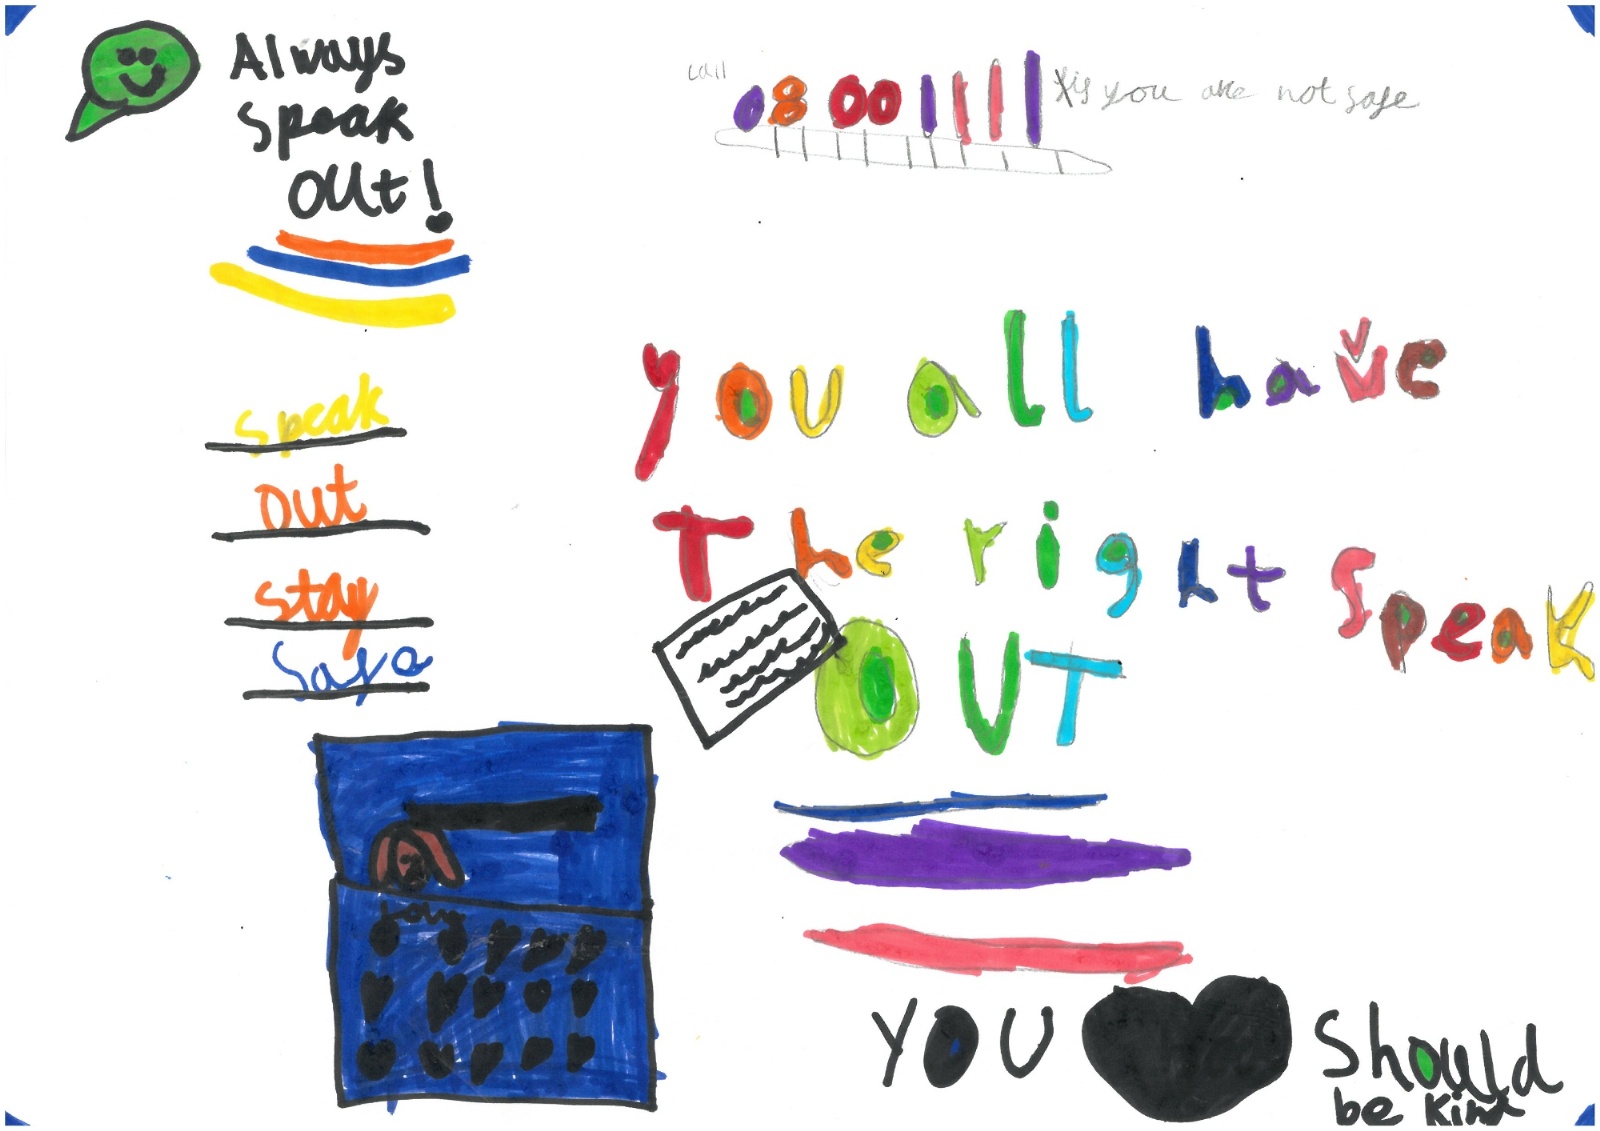 Always
speak
out!
call 0800 1111 if you are not safe
speak
out
stay
safe
you all have
The right speak
OUT
YOU should
be kind